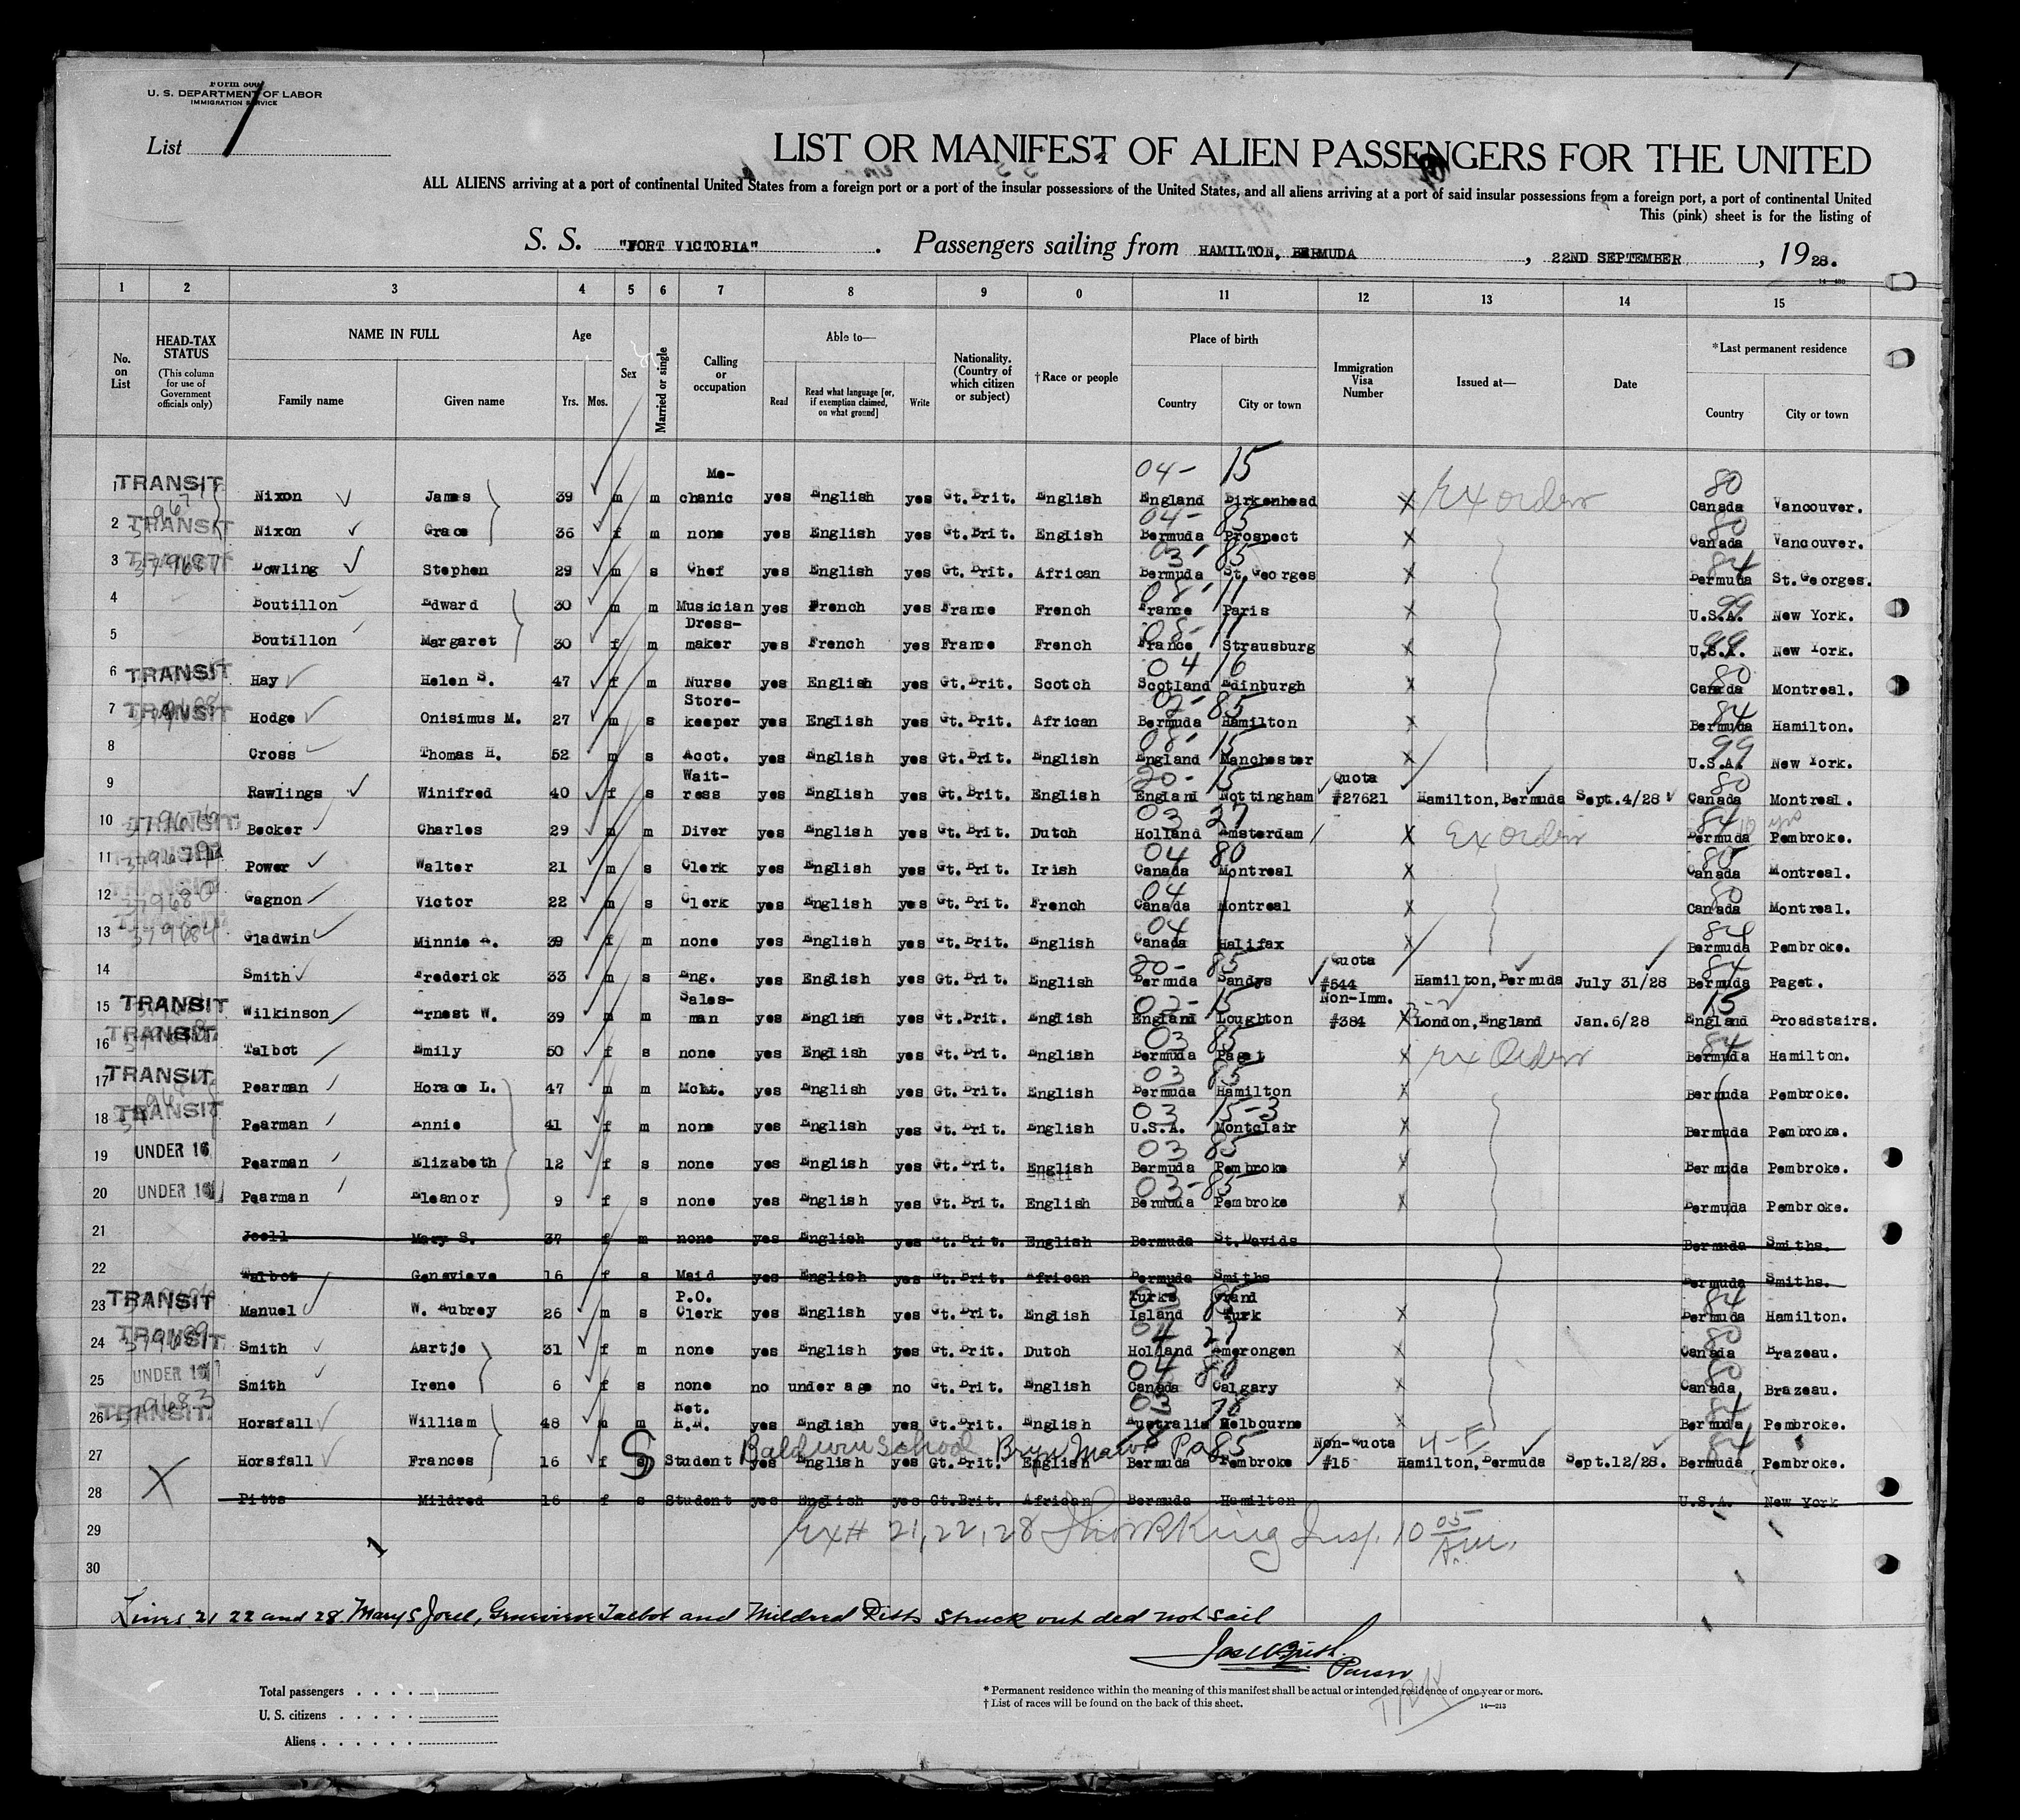 Form 500
U. S. DEPARTMENT OF LABOR
IMMIGRATION SERVICE
List 1
LIST OR MANIFEST OF ALIEN PASSENGERS FOR THE UNITED
ALL ALIENS arriving at a port of continental United States from a foreign port or a port of the insular possessions of the United States, and all aliens arriving at a port of said insular possessions from a foreign port, a port of continental United
This (pink) sheet is for the listing of
S. S. "FORT VICTORIA" . Passengers sailing from HAMILTON, BERMUDA , 22ND SEPTEMBER , 1928.
1 2 3 4 5 6 7 8 9 0 11 12 13 14 15
No. on List
HEAD-TAX STATUS (This column for use of Government officials only)
NAME IN FULL Family name Given name
Age Yrs. Mos.
Sex
Married or single
Calling or occupation
Able to— Read Read what language [or, if exemption claimed, on what ground] Write
Nationality. (Country of which citizen or subject)
†Race or people
Place of birth Country City or town
Immigration Visa Number
Issued at—
Date
*Last permanent residence Country City or town
1 TRANSIT Nixon James 39 m m Mechanic yes English yes Gt.Brit. English 04- 15 England Birkenhead X Ex order 80 Canada Vancouver.
2 TRANSIT Nixon Grace 36 f m none yes English yes Gt.Brit. English 04- 85 Bermuda Prospect X 80 Canada Vancouver.
3 TRANSIT Dowling Stephen 29 m s Chef yes English yes Gt.Brit. African 03- 85 Bermuda St.Georges X 84 Bermuda St.Georges.
4 Boutillon Edward 30 m m Musician yes French yes France French 08- 11 France Paris X 99 U.S.A. New York.
5 Boutillon Margaret 30 f m Dress-maker yes French yes France French 08- 11 France Strausburg X 99 U.S.A. New York.
6 TRANSIT Hay Helen S. 47 f m Nurse yes English yes Gt.Brit. Scotch 04 16 Scotland Edinburgh X 80 Canada Montreal.
7 TRANSIT Hodge Onisimus M. 27 m s Store-keeper yes English yes Gt.Brit. African 02- 85 Bermuda Hamilton X 84 Bermuda Hamilton.
8 Cross Thomas H. 52 m s Acct. yes English yes Gt.Brit. English 08- 15 England Manchester X 99 U.S.A. New York.
9 Rawlings Winifred 40 f s Wait-ress yes English yes Gt.Brit. English 20- 15 England Nottingham Quota #27621 Hamilton,Bermuda Sept.4/28 80 Canada Montreal.
10 TRANSIT Becker Charles 29 m m Diver yes English yes Gt.Brit. Dutch 03 27 Holland Amsterdam X Ex order 84 Bermuda Pembroke.
11 Power Walter 21 m s Clerk yes English yes Gt.Brit. Irish 04 80 Canada Montreal X 80 Canada Montreal.
12 Gagnon Victor 22 m s Clerk yes English yes Gt.Brit. French 04 Canada Montreal X 80 Canada Montreal.
13 379684 Gladwin Minnie A. 39 f m none yes English yes Gt.Brit. English 04 Canada Halifax X 84 Bermuda Pembroke.
14 Smith Frederick 33 m s Eng. yes English yes Gt.Brit. English 20- 85 Bermuda Sandys Quota #544 Hamilton,Bermuda July 31/28 84 Bermuda Paget.
15 TRANSIT Wilkinson Ernest W. 39 m m Sales-man yes English yes Gt.Brit. English 02- 15 England Loughton Non-Imm. #384 X London,England Jan.6/28 15 England Broadstairs.
16 TRANSIT Talbot Emily 50 f s none yes English yes Gt.Brit. English 03 85 Bermuda Paget X Ex Order 84 Bermuda Hamilton.
17 TRANSIT Pearman Horace L. 47 m m Mcht. yes English yes Gt.Brit. English 03 85 Bermuda Hamilton X Bermuda Pembroke.
18 TRANSIT Pearman Annie 41 f m none yes English yes Gt.Brit. English 03 15-3 U.S.A. Montclair X Bermuda Pembroke.
19 UNDER 16 Pearman Elizabeth 12 f s none yes English yes Gt.Brit. English 03 85 Bermuda Pembroke X Bermuda Pembroke.
20 UNDER 16 Pearman Eleanor 9 f s none yes English yes Gt.Brit. English 03-85 Bermuda Pembroke X Bermuda Pembroke.
21 Joell Mary S. 37 f m none yes English yes Gt.Brit. English Bermuda St.Davids Bermuda Smiths.
22 Talbot Genevieve 16 f s Maid yes English yes Gt.Brit. African Bermuda Smiths Bermuda Smiths.
23 TRANSIT Manuel W. Aubrey 26 m s P.O. Clerk yes English yes Gt.Brit. English Turks Island Grand Turk X 84 Bermuda Hamilton.
24 TRANSIT Smith Aartje 31 f m none yes English yes Gt.Brit. Dutch 04 27 Holland Amerongen X 80 Canada Brazeau.
25 UNDER 16 Smith Irene 6 f s none no under age no Gt.Brit. English 04 80 Canada Calgary X 80 Canada Brazeau.
26 TRANSIT 379683 Horsfall William 48 m m Ret. R.N. yes English yes Gt.Brit. English 03 78 Australia Melbourne X 84 Bermuda Pembroke.
Baldwin School Bryn Mawr Pa
27 Horsfall Frances 16 f s S Student yes English yes Gt.Brit. English 85 Bermuda Pembroke Non-Quota #15 4-E Hamilton,Bermuda Sept.12/28. 84 Bermuda Pembroke.
28 X Pitts Mildred 16 f s Student yes English yes Gt.Brit. African Bermuda Hamilton U.S.A. New York
29 Ex# 21, 22, 28 King Insp. 10 05 A.M.
30
Lines 21 22 and 28. Mary S Joell, Genevieve Talbot and Mildred Pitts struck out ded not sail
Purser
Total passengers . . . .
U. S. citizens . . . . .
Aliens . . . . . .
* Permanent residence within the meaning of this manifest shall be actual or intended residence of one year or more.
† List of races will be found on the back of this sheet.
14—213